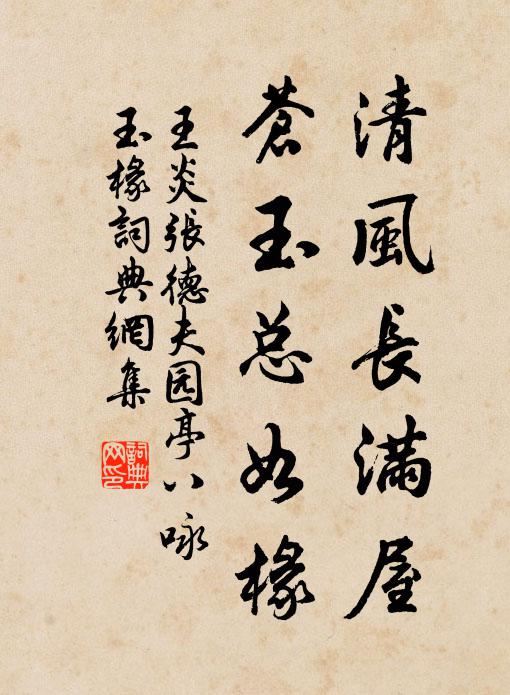 清風長滿屋
蒼玉总如椽
王炎張德夫园亭八咏
玉椽詞典網集
詞典
网印